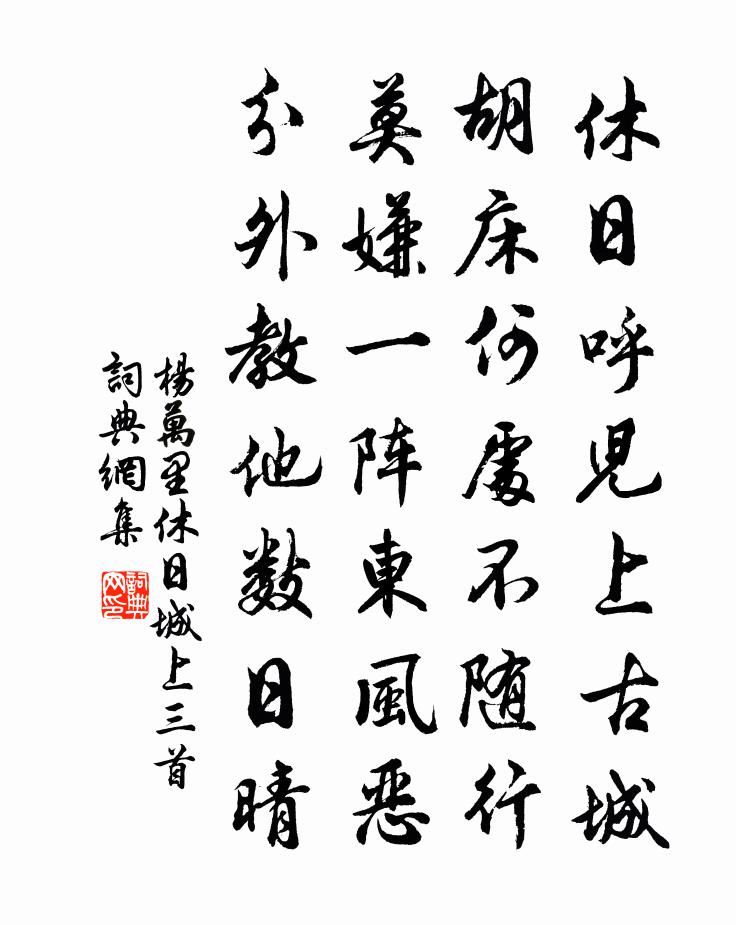 休日呼児上古城
胡床何處不随行
莫嫌一阵東風恶
分外教他数日晴
楊萬里休日城上三首
詞典網集
詞典网印